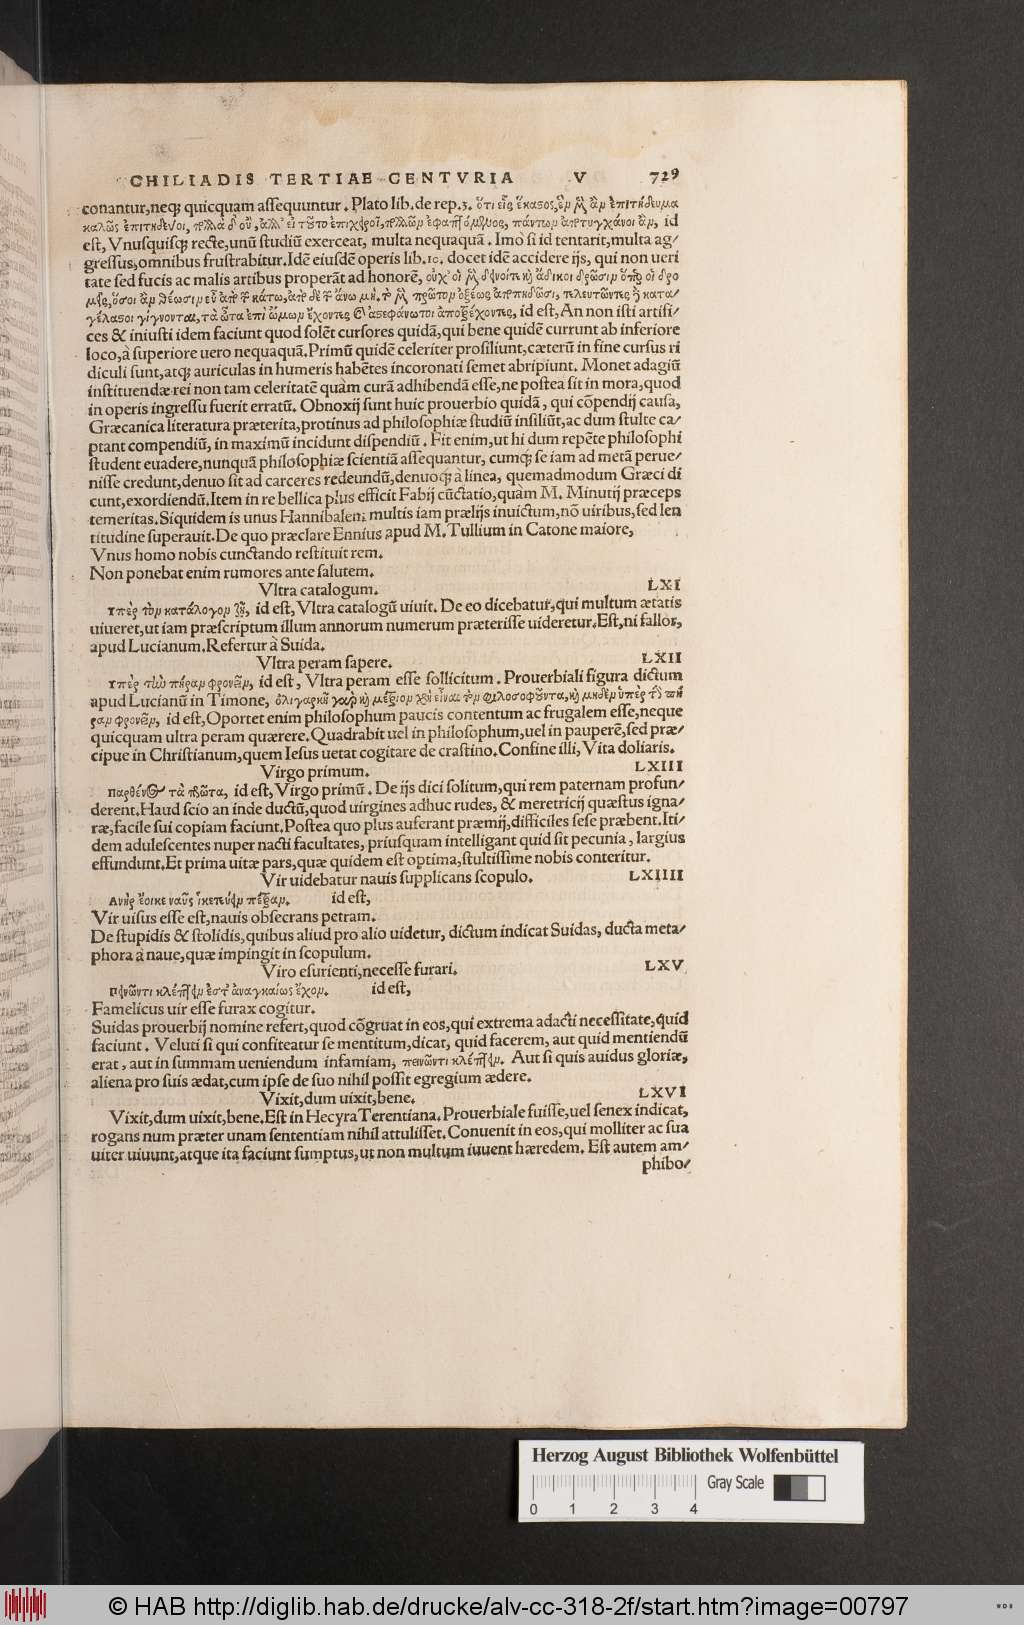 CHILIADIS TERTIAE CENTVRIA V 729
conantur,neqꝫ quicquam aſſequuntur. Plato lib.de rep.3. ὅτι εἷς ἕκαστος, ἓν μὲν ἂν ἐπιτήδευμα
καλῶς ἐπιτηδεύοι, πολλὰ δ' οὔ, ἀλλ' εἰ τοῦτο ἐπιχειροῖ, πολλῶν ἐφαπτόμενος, πάντων ἀποτυγχάνοι ἄν, id
eſt, Vnuſquiſqꝫ recte,unū ſtudiū exerceat, multa nequaquā. Imò ſi id tentarit,multa ag-
greſſus,omnibus fruſtrabitur.Idē eiuſdē operis lib.10. docet idē accidere ijs, qui non ueri
tate ſed fucis ac malis artibus properāt ad honorē, οὐχ' οἱ μὲν δεινοί τε καὶ ἄδικοι δρῶσιν ὅπερ οἱ δρο
μεῖς, ὅσοι ἂν θέωσιν εὖ ἀπὸ τῶν κάτω, ἀπὸ δὲ τῶν ἄνω μή. τὸ μὲν πρῶτον ὀξέως ἀποπηδῶσι, τελευτῶντες δὲ κατα-
γέλαστοι γίγνονται, τὰ ὦτα ἐπὶ ὤμων ἔχοντες καὶ ἀστεφάνωτοι ἀποτρέχοντες, id eſt, An non iſti artifi-
ces & iniuſti idem faciunt quod ſolēt curſores quidā,qui bene quidē currunt ab inferiore
loco,à ſuperiore uero nequaquā.Primū quidē celeriter proſiliunt,cæterū in fine curſus ri
diculi ſunt,atqꝫ auriculas in humeris habētes incoronati ſemet abripiunt. Monet adagiū
inſtituendæ rei non tam celeritatē quàm curā adhibendā eſſe,ne poſtea ſit in mora,quod
in operis ingreſſu fuerit erratū. Obnoxij ſunt huic prouerbio quidā, qui cōpendij cauſa,
Græcanica literatura præterita,protinus ad philoſophiæ ſtudiū inſiliūt,ac dum ſtulte ca-
ptant compendiū, in maximū incidunt diſpendiū. Fit enim,ut hi dum repēte philoſophi
ſtudent euadere,nunquā philoſophiæ ſcientiā aſſequantur, cumqꝫ ſe iam ad metā perue-
niſſe credunt,denuo ſit ad carceres redeundū,denuoqꝫ à linea, quemadmodum Græci di
cunt,exordiendū.Item in re bellica plus efficit Fabij cūctatio,quàm M. Minutij præceps
temeritas.Siquidem is unus Hannibalem multis iam prælijs inuictum,nō uiribus,ſed len
titudine ſuperauit.De quo præclare Ennius apud M. Tullium in Catone maiore,
Vnus homo nobis cunctando reſtituit rem.
Non ponebat enim rumores ante ſalutem.
Vltra catalogum. LXI
Ὑπὲρ τὸν κατάλογον ζῇ, id eſt, Vltra catalogū uiuit. De eo dicebatur,qui multum ætatis
uiueret,ut iam præſcriptum illum annorum numerum præteriſſe uideretur.Eſt,ni fallor,
apud Lucianum.Refertur à Suida.
Vltra peram ſapere. LXII
Ὑπὲρ τὴν πήραν φρονεῖν, id eſt, Vltra peram eſſe ſollicitum. Prouerbiali figura dictum
apud Lucianū in Timone, ὀλιγαρκῆ γὰρ καὶ μέτριον χρὴ εἶναι τὸν φιλοσοφοῦντα, καὶ μηδὲν ὑπὲρ τὴν πή
ραν φρονεῖν, id eſt,Oportet enim philoſophum paucis contentum ac frugalem eſſe,neque
quicquam ultra peram quærere.Quadrabit uel in philoſophum,uel in pauperē,ſed præ-
cipue in Chriſtianum,quem Ieſus uetat cogitare de craſtino.Confine illi, Vita doliaris.
Virgo primum. LXIII
Παρθένος τὰ πρῶτα, id eſt, Virgo primū. De ijs dici ſolitum,qui rem paternam profun-
derent.Haud ſcio an inde ductū,quod uirgines adhuc rudes, & meretricij quæſtus igna-
ræ,facile ſui copiam faciunt.Poſtea quo plus auferant præmij,difficiles ſeſe præbent.Iti-
dem aduleſcentes nuper nacti facultates, priuſquam intelligant quid ſit pecunia, largius
effundunt.Et prima uitæ pars,quæ quidem eſt optima,ſtultiſſime nobis conteritur.
Vir uidebatur nauis ſupplicans ſcopulo. LXIIII
Ἀνὴρ ἔοικε ναῦς ἱκετεύειν πέτραν. id eſt,
Vir uiſus eſſe eſt,nauis obſecrans petram.
De ſtupidis & ſtolidis,quibus aliud pro alio uidetur, dictum indicat Suidas, ducta meta-
phora à naue,quæ impingit in ſcopulum.
Viro eſurienti,neceſſe furari. LXV
Πεινῶντι κλέπτειν ἔστ' ἀναγκαίως ἔχον. id eſt,
Famelicus uir eſſe furax cogitur.
Suidas prouerbij nomine refert,quod cōgruat in eos,qui extrema adacti neceſſitate,quid
faciunt. Veluti ſi qui confiteatur ſe mentitum,dicat, quid facerem, aut quid mentiendū
erat, aut in ſummam ueniendum infamiam, πεινῶντι κλέπτειν. Aut ſi quis auidus gloriæ,
aliena pro ſuis ædat,cum ipſe de ſuo nihil poſſit egregium ædere.
Vixit,dum uixit,bene. LXVI
Vixit,dum uixit,bene.Eſt in Hecyra Terentiana.Prouerbiale fuiſſe,uel ſenex indicat,
rogans num præter unam ſententiam nihil attuliſſet.Conuenit in eos,qui molliter ac ſua
uiter uiuunt,atque ita faciunt ſumptus,ut non multum iuuent hæredem. Eſt autem am-
phibo-
Herzog August Bibliothek Wolfenbüttel
Gray Scale
0 1 2 3 4
© HAB http://diglib.hab.de/drucke/alv-cc-318-2f/start.htm?image=00797